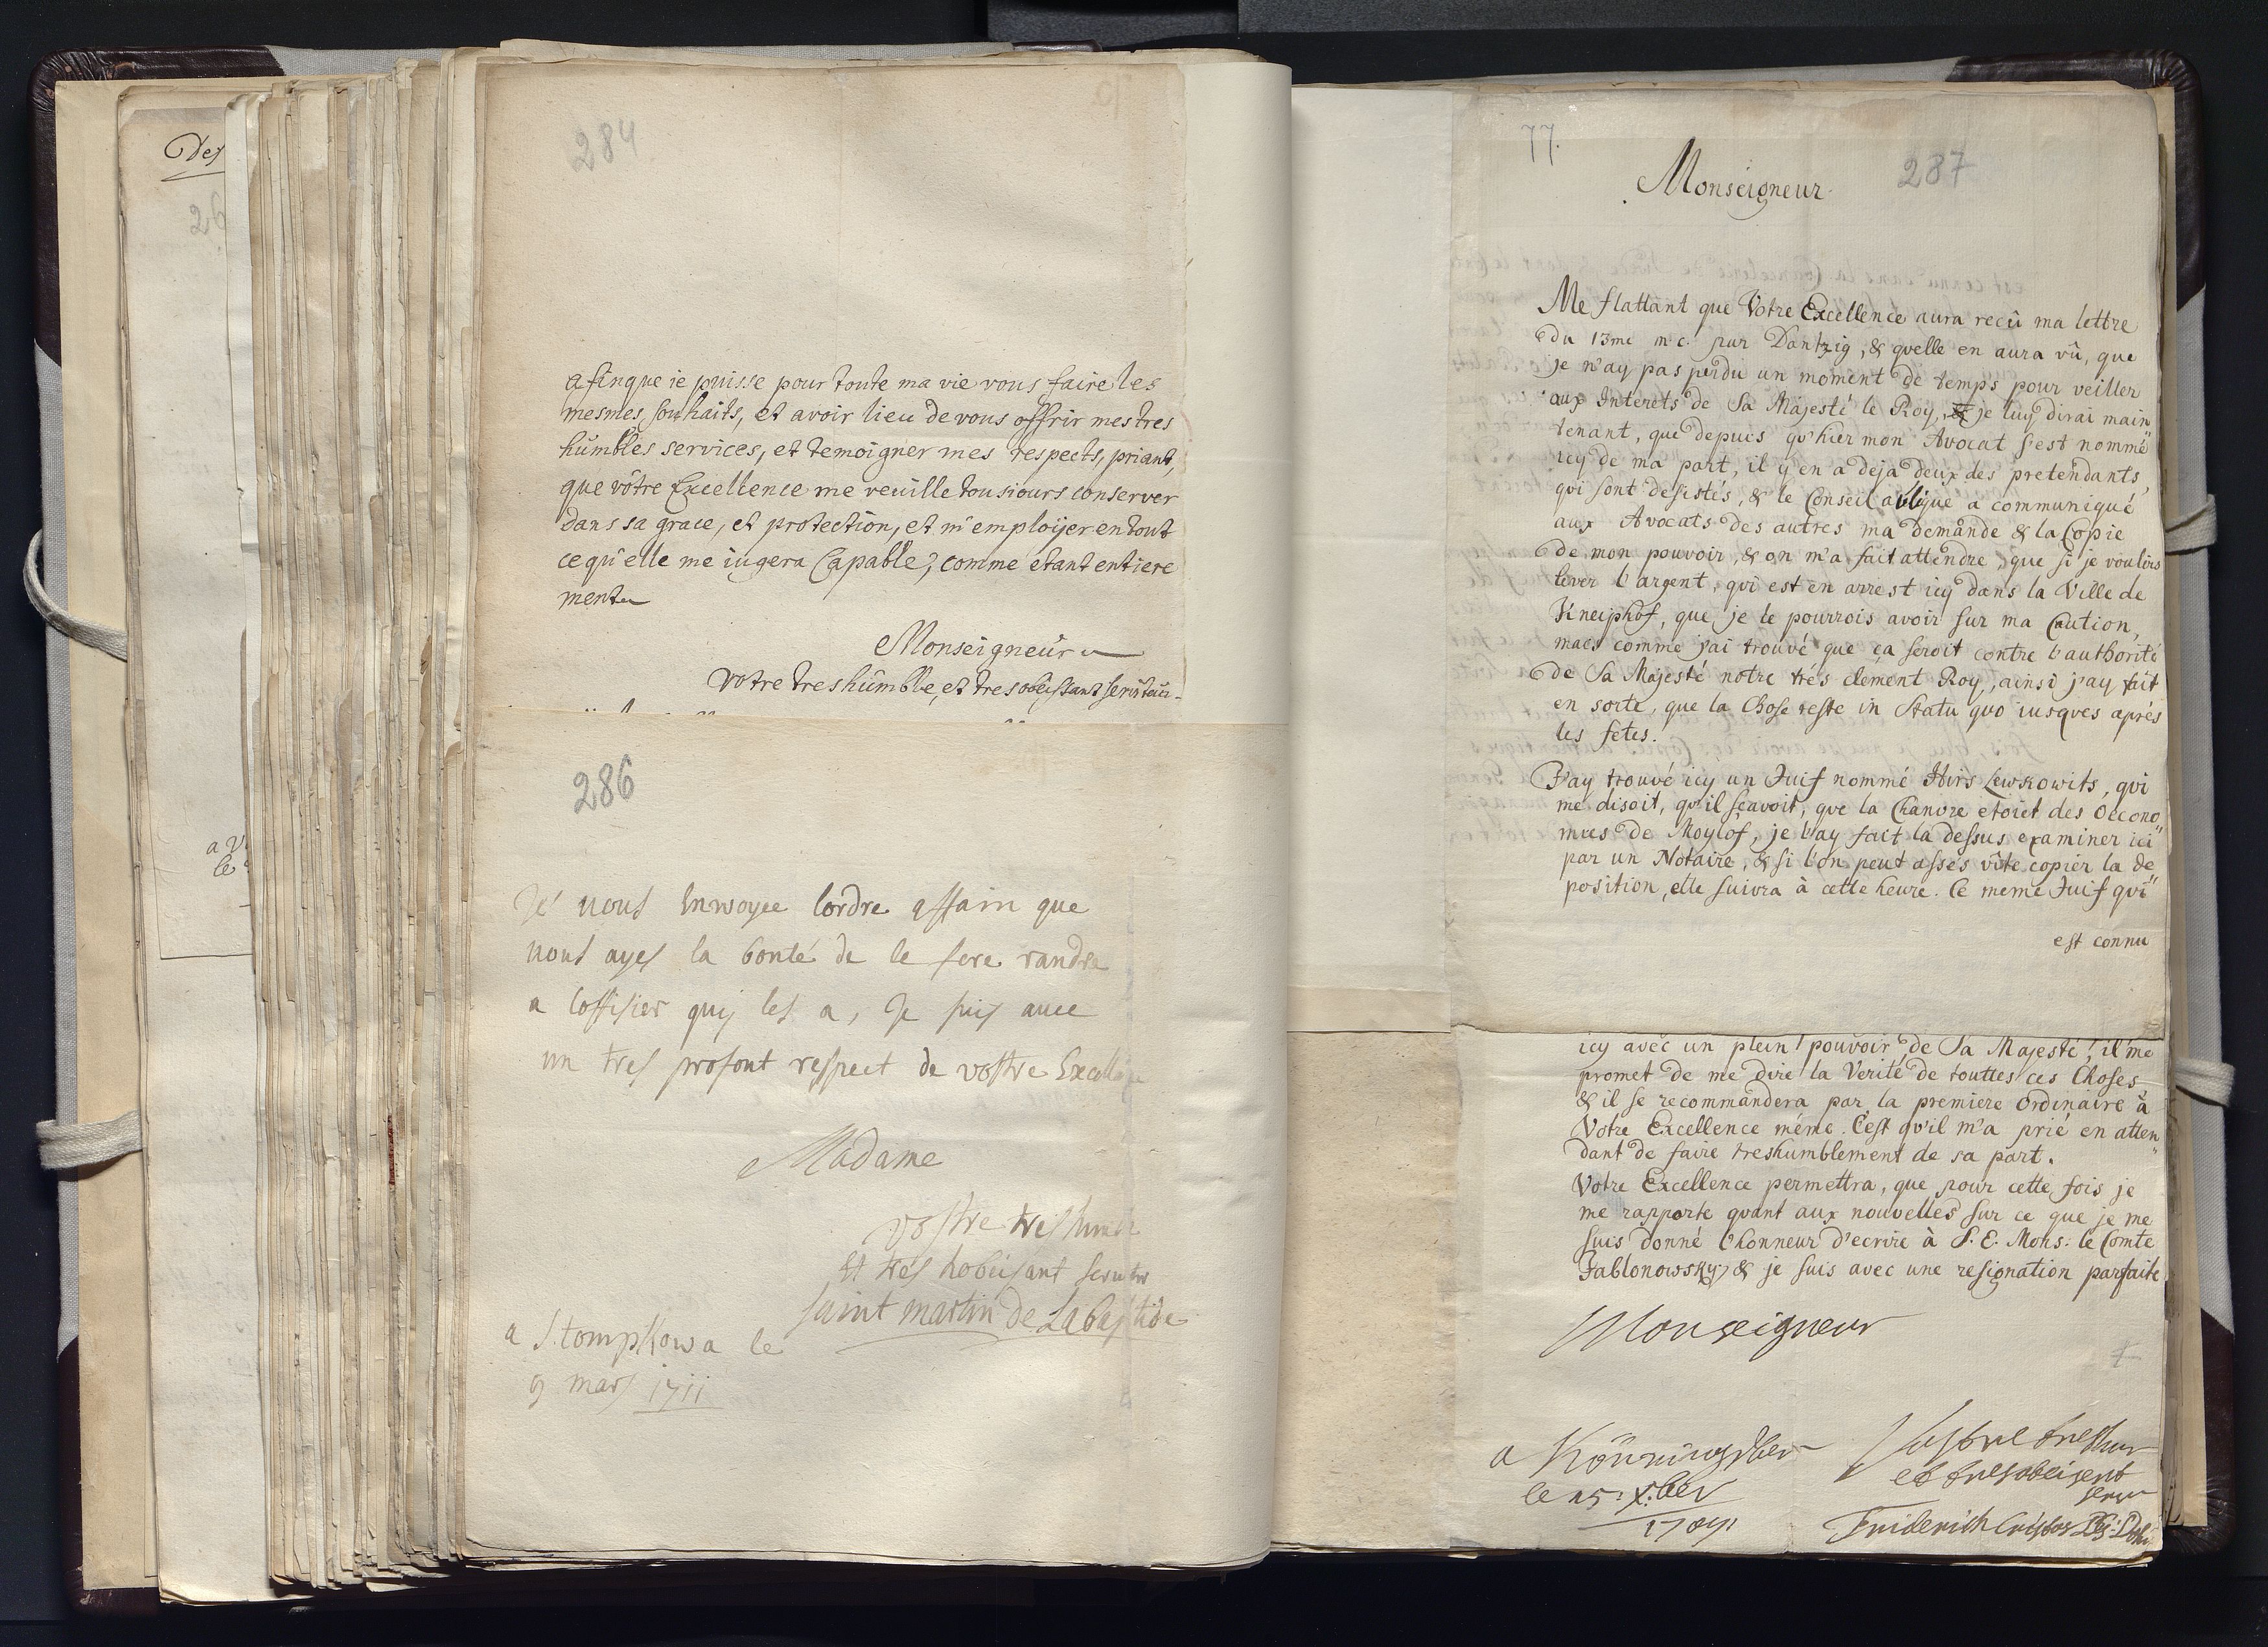 Des
26
a V
le
284
afinque ie puisse pour toute ma vie vous faire les
mesmes souhaits, et avoir lieu de vous offrir mes tres
humbles services, et temoigner mes respects, priant,
que vôtre Excellence me veuille tousiours conserver
dans sa grace, et protection, et m'employer en tout
ce qu'elle me iugera Capable, comme étant entiere
ment
Monseigneur
Votre tres humble, et tres obeissant serviteur
286
Je vous Envoyee lordre affain que
vous ayes la bonté de le fere randre
a loffisier quy les a, Je suis avec
un tres profont respect de vostre Excellance
Madame
vostre tres humble
Et tres hobeisant
saint martin de Labastide
a Stompkowa le
9 mars 1711
77.
287
Monseigneur
Me flattant que Votre Excellence aura reçû ma lettre
du 13me m. c. par Dantzig, & qvelle en aura vû, que
je n'ay pas perdu un moment de temps pour veiller
aux Interets de Sa Majesté le Roy, je luy dirai main
tenant, que depuis qv'hier mon Avocat s'est nommé
icy de ma part, il y en a deja deux des pretendants,
qvi sont desistés, & le Conseil a communiqué
aux Avocats des autres ma demande & la Copie
de mon pouvoir, & on m'a fait attendre, que si je voulois
lever l'argent, qvi est en arrest icy dans la Ville de
Kneiphof, que je le pourrois avoir sur ma Caution,
mais comme j'ai trouvé que ça seroit contre l'authorité
de Sa Majesté notre trés clement Roy, ainsi j'ay fait
en sorte, que la Chose reste in Statu quo iusqves aprés
les fetes.
J'ay trouvé icy un Juif nommé Hirs Lewkowits, qvi
me disoit, qv'il sçavoit, qve la Chanvre etoiet des Oecono
mies de Moylof, je l'ay fait la dessus examiner ici
par un Notaire, & si l'on peut assés vîte copier la de
position, elle suivra à cette heure. Ce meme Juif qvi
est connu
icy avec un plein pouvoir de Sa Majesté, il me
promet de me dire la Verité de touttes ces Choses
& il se recommandera par la premiere ordinaire à
Votre Excellence méme. C'est qv'il m'a prié en atten
dant de faire treshumblement de sa part.
Votre Excellence permettra, que pour cette fois je
me rapporte qvant aux nouvelles sur ce que je me
suis donné l'honneur d'ecrire à S. E. Mons: le Comte
Jablonowsky, & je suis avec une resignation parfaite
Monseigneur
a Könningsber
le 15: X:ber
Vostre treshum
et tres obeisent
serv
Friderich